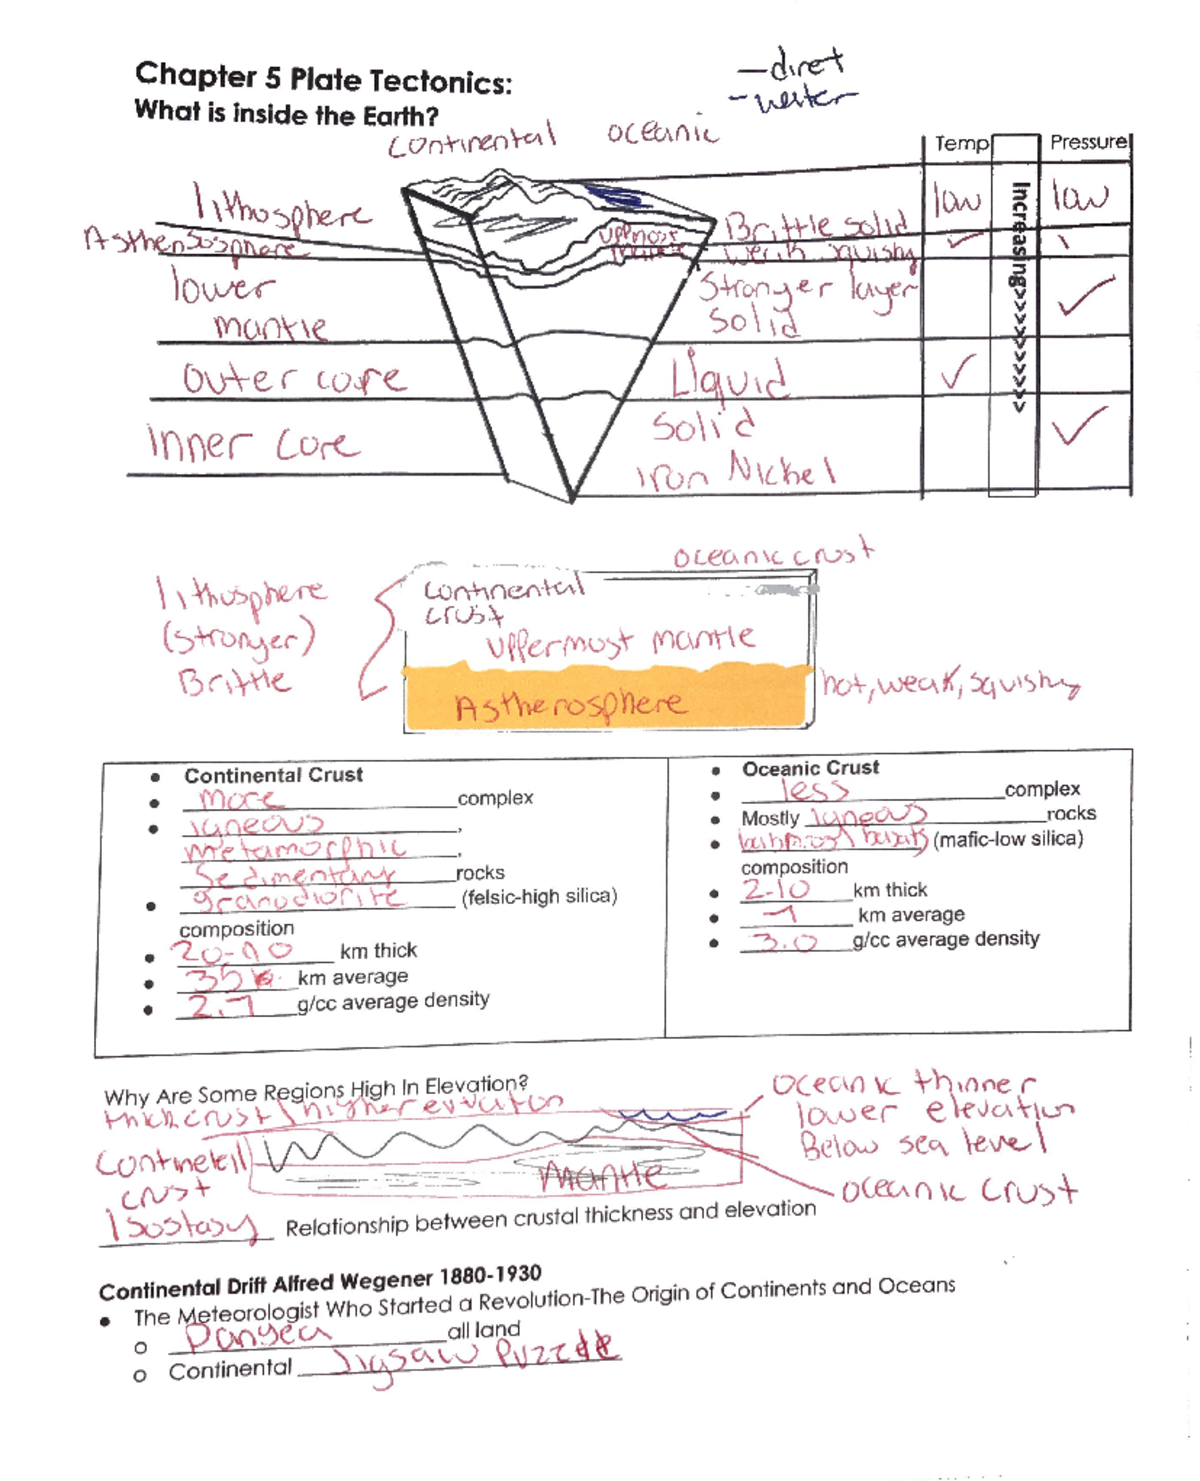 Chapter 5 Plate Tectonics:
What is inside the Earth?
-diret
continental oceanic
Temp Increasing>>>>>>>>> Pressure
lithosphere Brittle solid low low
Asthenososphere uppmost mantle weak squishy ✓ \
lower mantle Stronger layer solid ✓
outer core Liquid ✓
inner core Solid Iron Nickel ✓
oceanic crust
lithosphere
(stronger)
Brittle
continental
crust
uppermost mantle
Astherosphere
hot, weak, squishy
• Continental Crust
• more complex
• igneous,
metamorphic,
Sedimentary rocks
• granodiorite (felsic-high silica)
composition
• 20-90 km thick
• 35 km average
• 2.7 g/cc average density
• Oceanic Crust
• less complex
• Mostly igneous rocks
• (mafic-low silica)
composition
• 2-10 km thick
• 7 km average
• 3.0 g/cc average density
Why Are Some Regions High In Elevation?
thick crust higher
Crust
Mantle
oceanic thinner
lower elevation
Below sea level
oceanic crust
Isostasy Relationship between crustal thickness and elevation
Continental Drift Alfred Wegener 1880-1930
• The Meteorologist Who Started a Revolution-The Origin of Continents and Oceans
o Pangea all land
o Continental Jigsaw